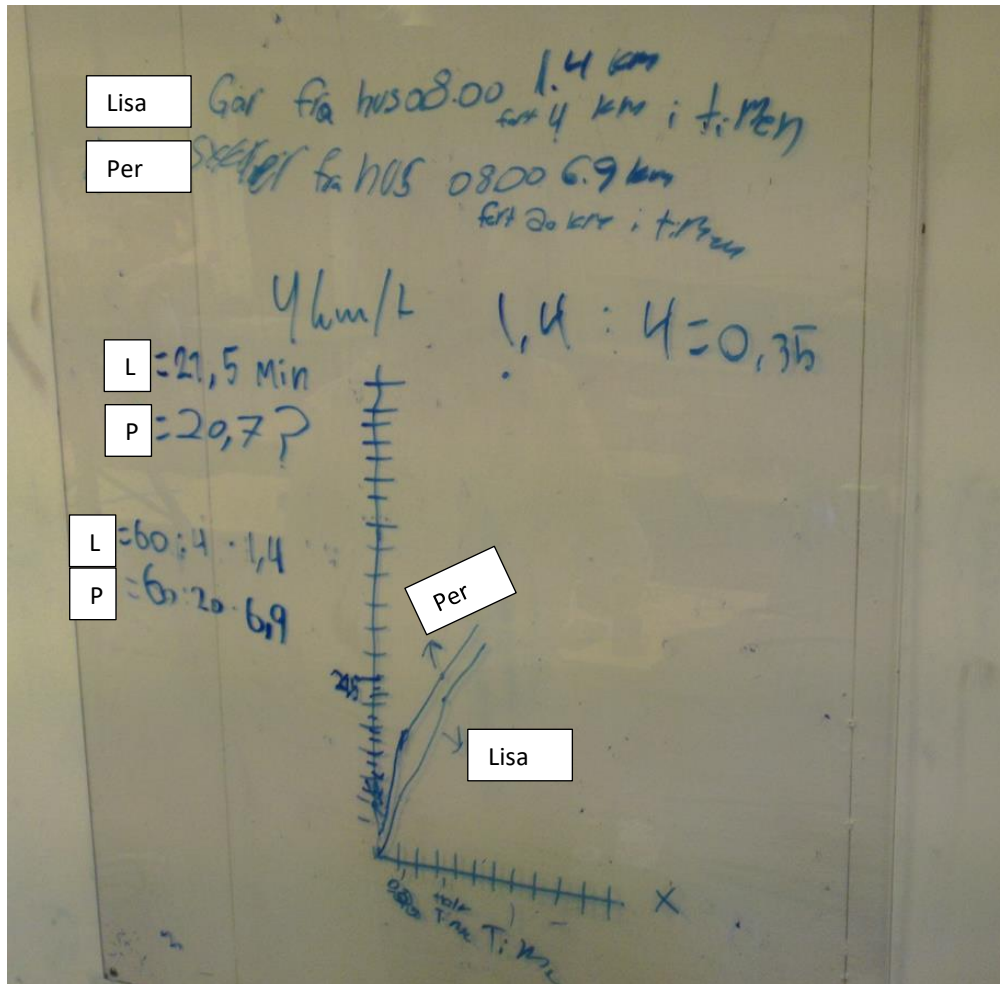 Lisa Går fra hus 08.00 1.4 km
fart 4 km i timen
Per fra hus 0800 6.9 km
fart 20 km i timen
4 km/t
1,4 : 4 = 0,35
L = 21,5 Min
P = 20,7 ?
L = 60 : 4 · 1,4
P = 60 : 20 · 6,9
Per
Lisa
X
Halv
Time
Time